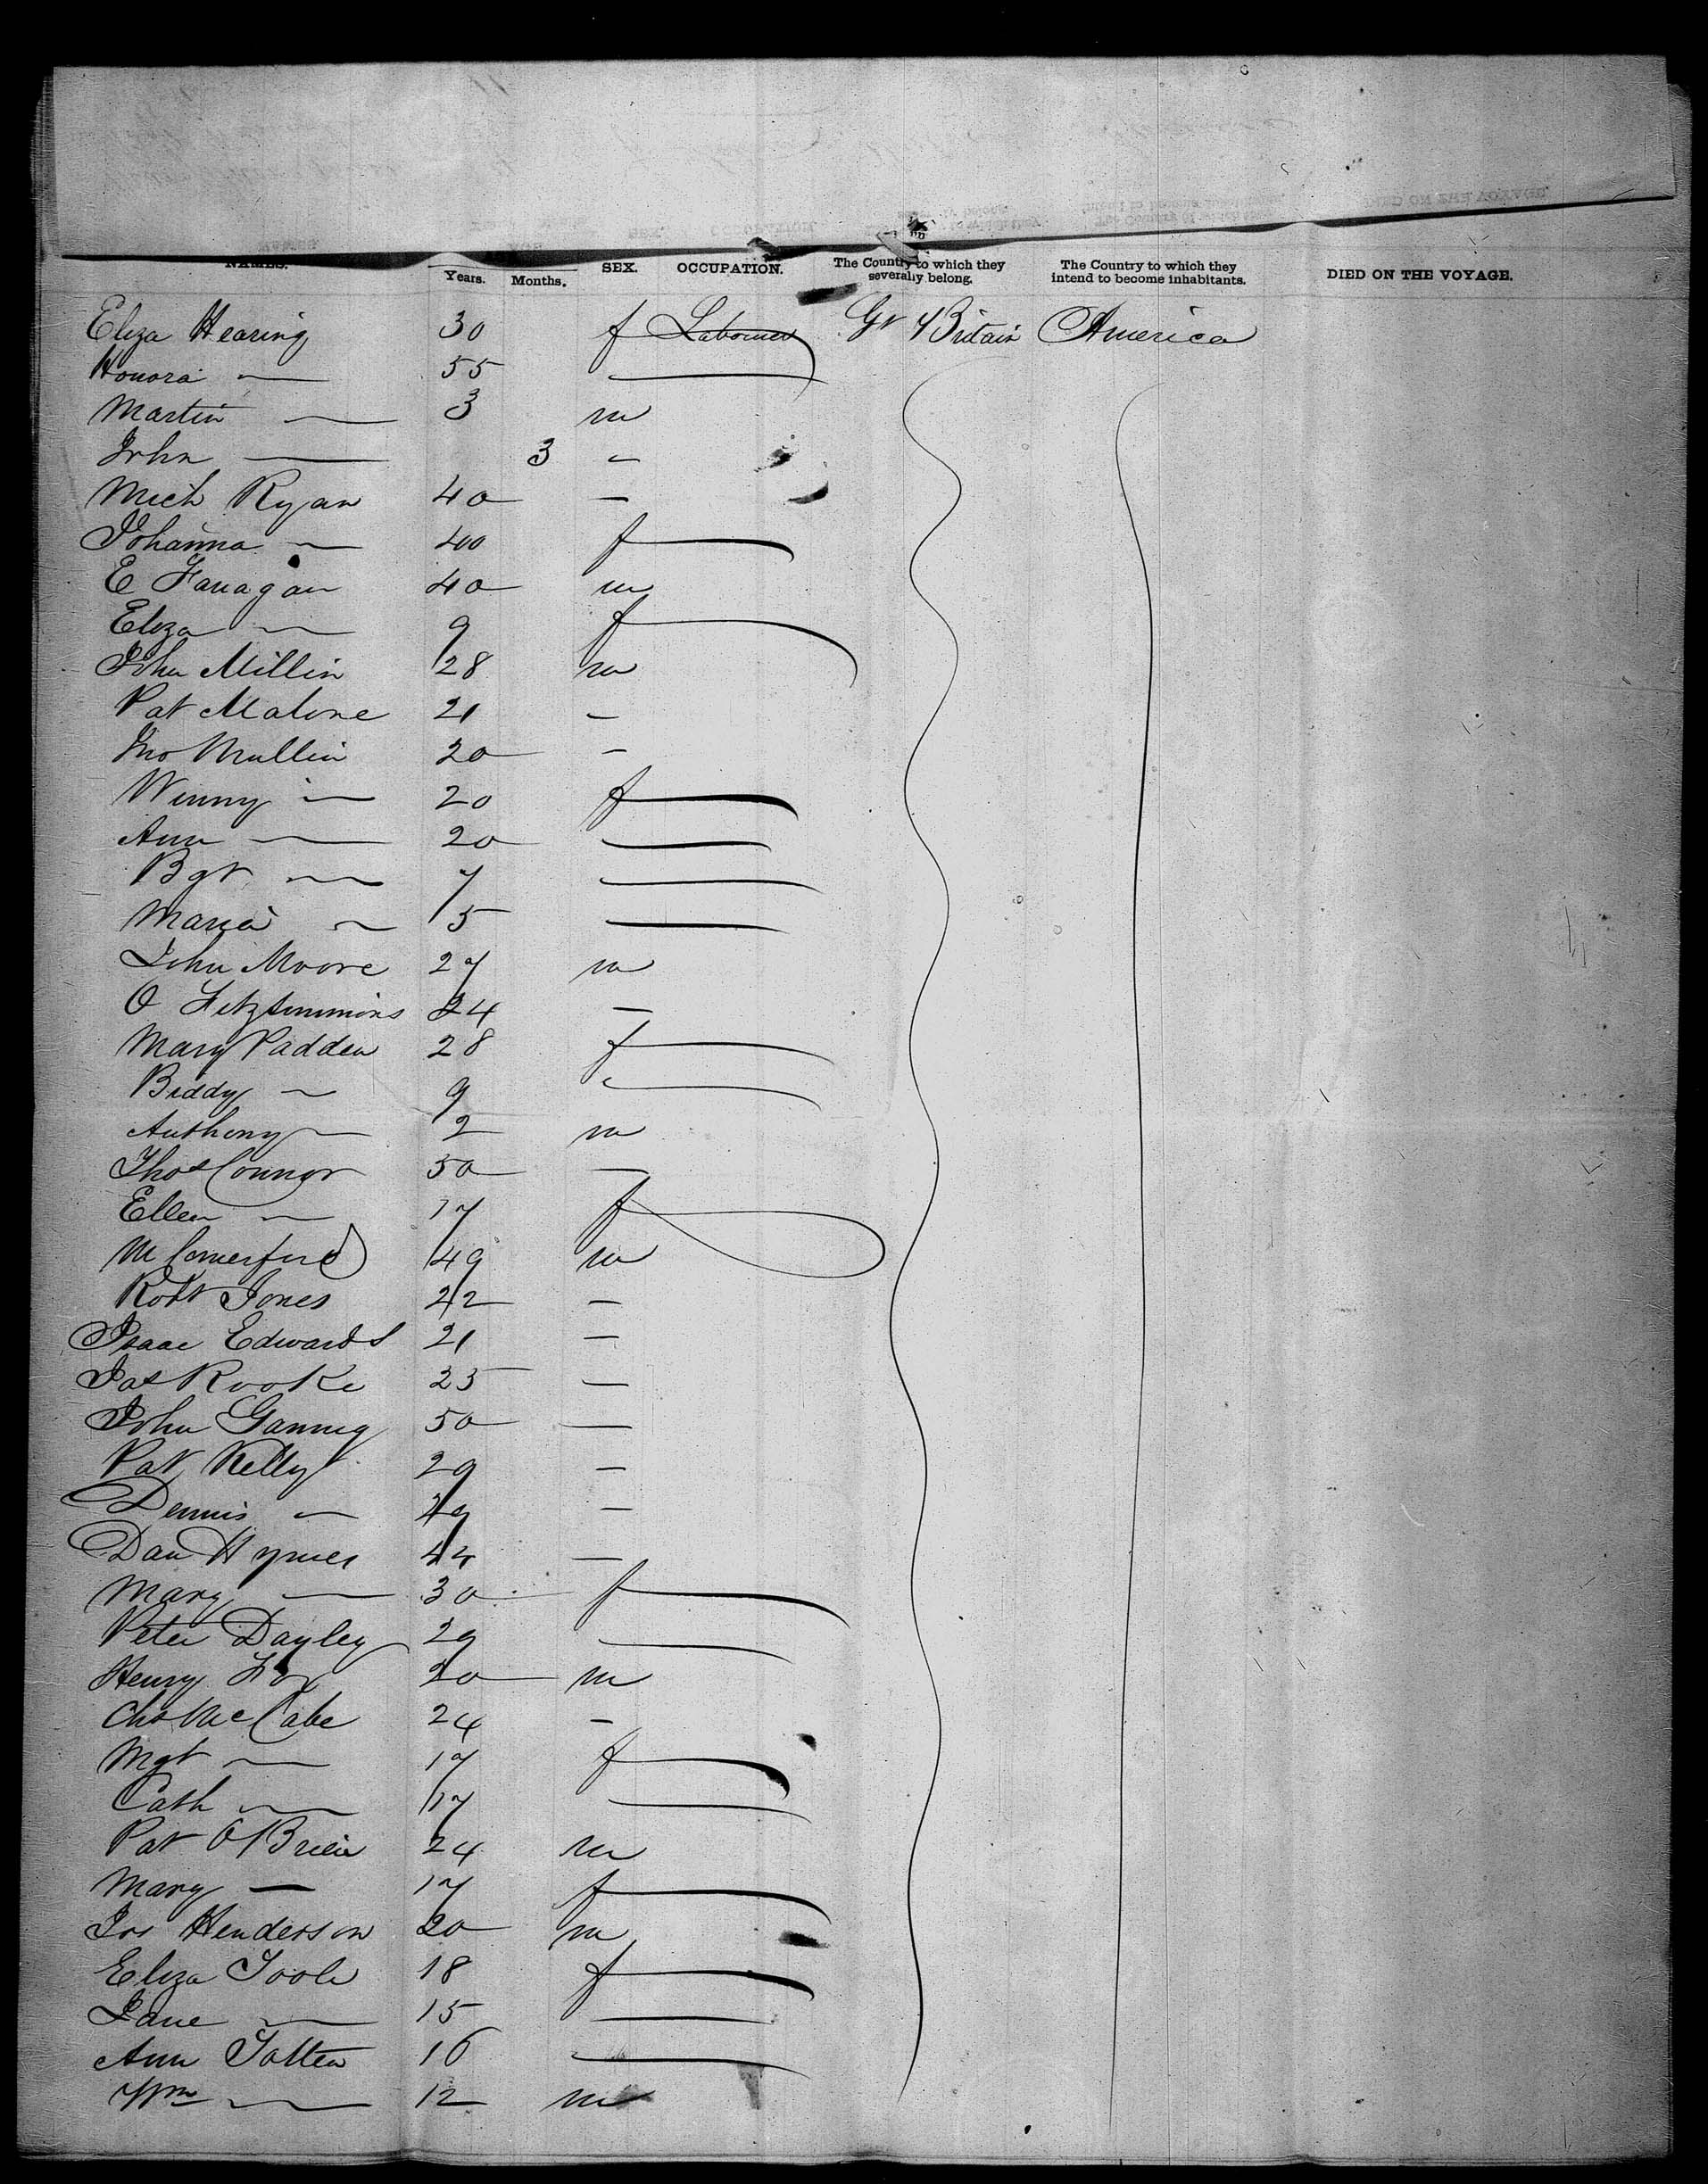 NAMES.
Years. Months. SEX. OCCUPATION. The Country to which they severally belong. The Country to which they intend to become inhabitants. DIED ON THE VOYAGE.
Eliza Hearing 30 f Labourer Gt Britain America
Honora — 55 —
Martin — 3 m
John — 3 —
Mich Ryan 40 —
Johanna — 40 f
E Fanagan 40 m
Eliza — 9 f
John Millin 28 m
Pat Malone 21 —
Jno Mullin 20 —
Winny — 20 f
Ann — 20 —
Bgt — 7 —
Maria — 5 —
John Moore 27 m
O Fitzsimmons 24 —
Mary Padden 28 f
Biddy — 9 —
Anthony — 2 m
Thos Connor 50 —
Ellen — 17 f
M Comerford 49 m
Robt Jones 22 —
Isaac Edwards 21 —
Jas Rooke 25 —
John Gannig 50 —
Pat Kelly 29 —
Dennis — 29 —
Dan Hynes 44 —
Mary — 30 f
Peter Dayley 29 —
Henry Fox 20 m
Chs McCabe 24 —
Mgt — 17 f
Cath — 17 —
Pat O'Brien 24 m
Mary — 17 f
Jos Henderson 20 m
Eliza Toole 18 f
Jane — 15 —
Ann Totten 16 —
Wm — 12 m